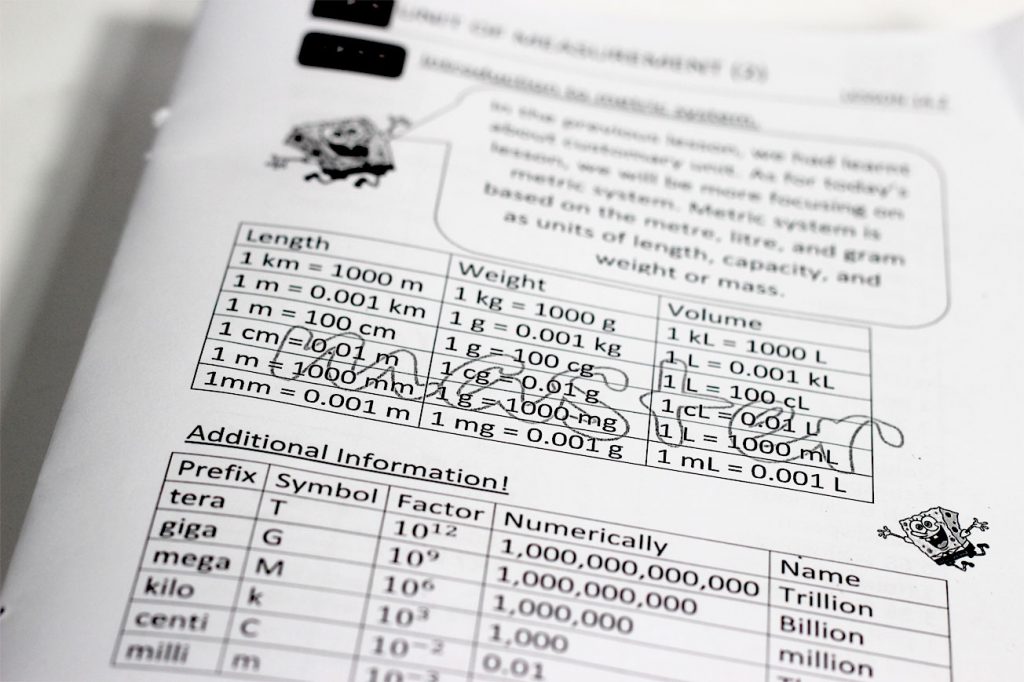 UNIT OF MEASUREMENT
Introduction to metric system.
In the previous lesson, we had learnt
about customary unit. As for today's
lesson, we will be more focusing on
metric system. Metric system is
based on the metre, litre, and gram
as units of length, capacity, and
weight or mass.
Length Weight Volume
1 km = 1000 m 1 kg = 1000 g 1 kL = 1000 L
1 m = 0.001 km 1 g = 0.001 kg 1 L = 0.001 kL
1 m = 100 cm 1 g = 100 cg 1 L = 100 cL
1 cm = 0.01 m 1 cg = 0.01 g 1 cL = 0.01 L
1 m = 1000 mm 1 g = 1000 mg 1 L = 1000 mL
1mm = 0.001 m 1 mg = 0.001 g 1 mL = 0.001 L
Additional Information!
Prefix Symbol Factor Numerically Name
tera T 10¹² 1,000,000,000,000 Trillion
giga G 10⁹ 1,000,000,000 Billion
mega M 10⁶ 1,000,000 million
kilo k 10³ 1,000
centi C 10⁻² 0.01
milli m 10⁻³